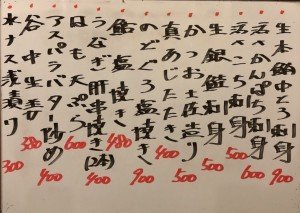 生本鮪中とろ刺身 900
活〆かんぱち刺身 600
生銀鮭刺身 500
かつお造り 500
真あじたたき 400
のどぐろ塩焼き 900
鮎塩焼き 480
うなぎ肝串焼き(2本) 400
はも天ぷら 600
アスパラバター炒め 400
谷中生姜 380
水ナス浅漬け 300